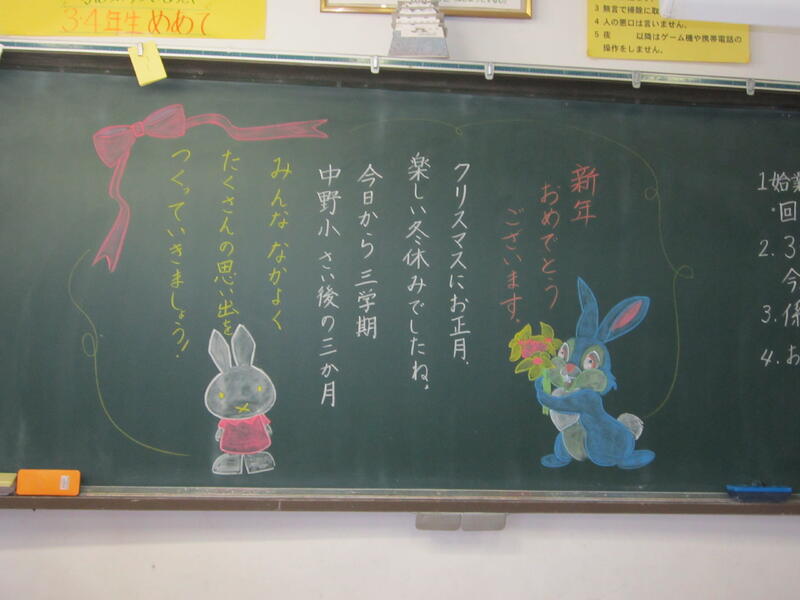 3・4年生 めめて
3 無言で掃除に取
4 人の悪口は言いません。
5 夜　　以降はゲーム機や携帯電話の
操作をしません。
新年
おめでとう
ございます。
クリスマスにお正月、
楽しい冬休みでしたね。
今日から三学期
中野小 さい後の三か月
みんな なかよく
たくさんの思い出を
つくっていきましょう！
1 始業
・回
2. 3
今
3. 係
4. お